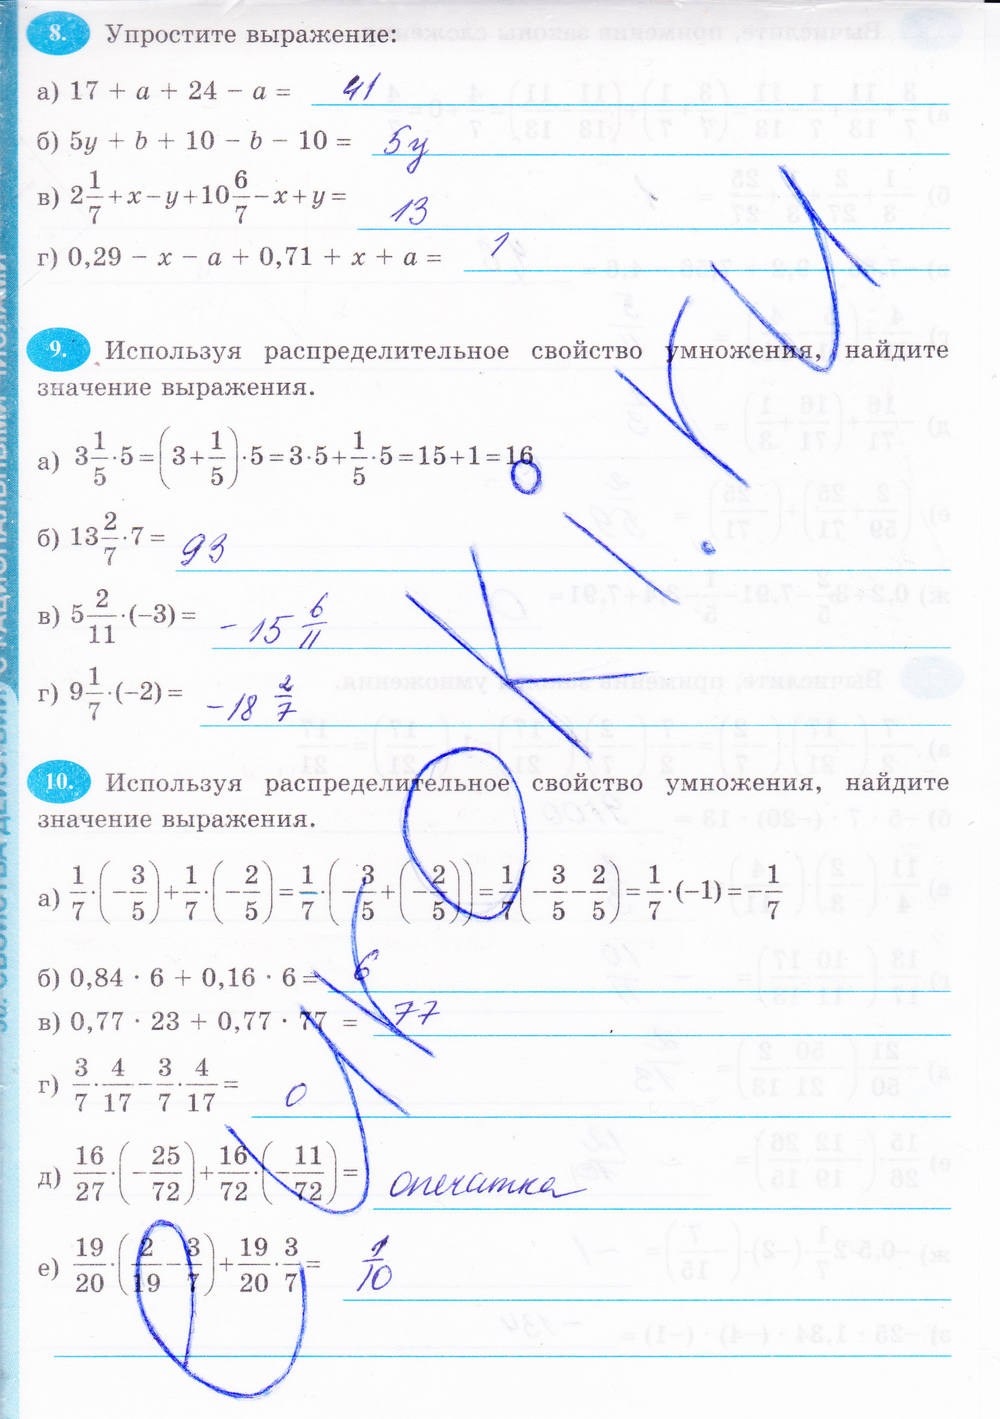 8. Упростите выражение:
а) 17 + a + 24 − a = 41
б) 5y + b + 10 − b − 10 = 5y
в) 2 1/7 + x − y + 10 6/7 − x + y = 13
г) 0,29 − x − a + 0,71 + x + a = 1
9. Используя распределительное свойство умножения, найдите
значение выражения.
а) 3 1/5 · 5 = (3 + 1/5) · 5 = 3 · 5 + 1/5 · 5 = 15 + 1 = 16
б) 13 2/7 · 7 = 93
в) 5 2/11 · (−3) = −15 6/11
г) 9 1/7 · (−2) = −18 2/7
10. Используя распределительное свойство умножения, найдите
значение выражения.
а) 1/7 · (−3/5) + 1/7 · (−2/5) = 1/7 · (−3/5 + (−2/5)) = 1/7 (−3/5 − 2/5) = 1/7 · (−1) = −1/7
б) 0,84 · 6 + 0,16 · 6 = 6
в) 0,77 · 23 + 0,77 · 77 = 77
г) 3/7 · 4/17 − 3/7 · 4/17 = 0
д) 16/27 · (−25/72) + 16/72 · (−11/72) = опечатка
е) 19/20 · (2/19 − 3/7) + 19/20 · 3/7 = 1/10